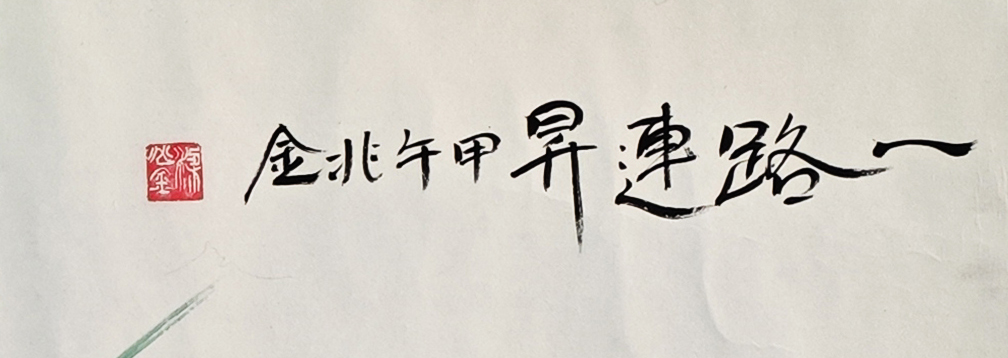 一路連昇 甲午兆金